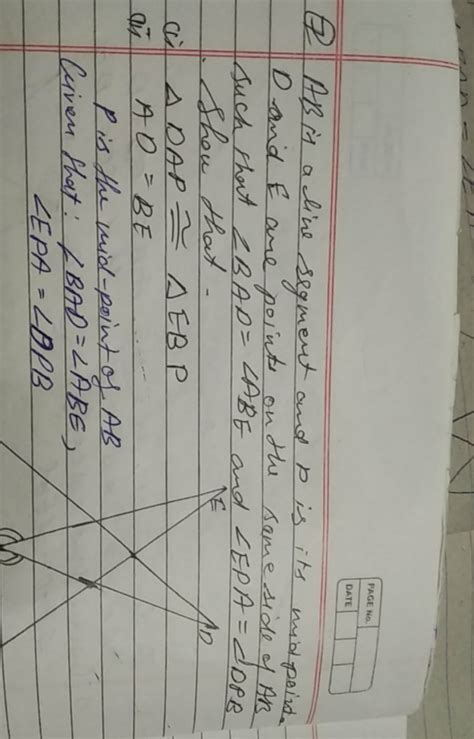 PAGE No.
DATE
Q AB is a line segment and P is its mid point.
D and E are points on the same side of AB
such that ∠BAD = ∠ABE and ∠EPA = ∠DPB
Show that -
(i) △DAP ≅ △EBP
(ii) AD = BE
P is the mid-point of AB
Given that : ∠BAD = ∠ABE,
∠EPA = ∠DPB
E
D